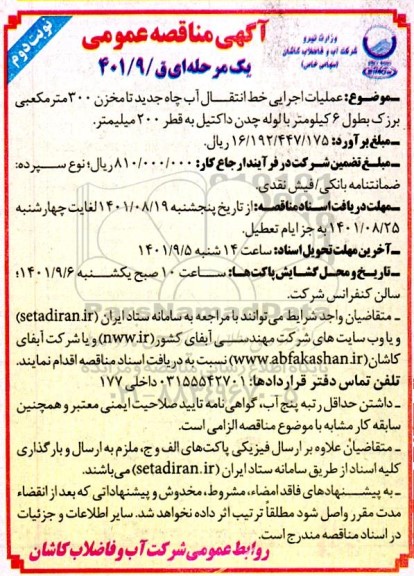 نوبت دوم
آگهی مناقصه عمومی
یک مرحله‌ای ق /۴۰۱/۹
وزارت نیرو
شرکت آب و فاضلاب کاشان
(سهامی خاص)
ـ موضوع: عملیات اجرایی خط انتقال آب چاه جدید تا مخزن ۳۰۰ مترمکعبی
برزک بطول ۶ کیلومتر با لوله چدن داکتیل به قطر ۲۰۰ میلیمتر.
ـ مبلغ برآورد: ۱۶/۱۹۲/۴۴۷/۱۷۵ ریال.
ـ مبلغ تضمین شرکت در فرآیند ارجاع کار: ۸۱۰/۰۰۰/۰۰۰ ریال؛ نوع سپرده:
ضمانتنامه بانکی/ فیش نقدی.
ـ مهلت دریافت اسناد مناقصه: از تاریخ پنجشنبه ۱۴۰۱/۰۸/۱۹ لغایت چهارشنبه
۱۴۰۱/۰۸/۲۵ به جز ایام تعطیل.
ـ آخرین مهلت تحویل اسناد: ساعت ۱۴ شنبه ۱۴۰۱/۹/۵
ـ تاریخ و محل گشایش پاکت‌ها: ساعت ۱۰ صبح یکشنبه ۱۴۰۱/۹/۶؛
سالن کنفرانس شرکت.
ـ متقاضیان واجد شرایط می‌توانند با مراجعه به سامانه ستاد ایران (setadiran.ir)
و یا وب سایت های شرکت مهندسی آبفای کشور (nww.ir) و یا شرکت آبفای
کاشان (www.abfakashan.ir) نسبت به دریافت اسناد مناقصه اقدام نمایند.
تلفن تماس دفتر قراردادها: ۰۳۱۵۵۵۴۲۷۰۱ داخلی ۱۷۷
ـ داشتن حداقل رتبه پنج آب، گواهی نامه تایید صلاحیت ایمنی معتبر و همچنین
سابقه کار مشابه با موضوع مناقصه الزامی است.
ـ متقاضیان علاوه بر ارسال فیزیکی پاکت‌های الف و ج، ملزم به ارسال و بارگذاری
کلیه اسناد از طریق سامانه ستاد ایران (setadiran.ir) می‌باشند.
ـ به پیشنهادهای فاقد امضاء، مشروط، مخدوش و پیشنهاداتی که بعد از انقضاء
مدت مقرر واصل شود مطلقاً ترتیب اثر داده نخواهد شد. سایر اطلاعات و جزئیات
در اسناد مناقصه مندرج است.
روابط عمومی شرکت آب و فاضلاب کاشان